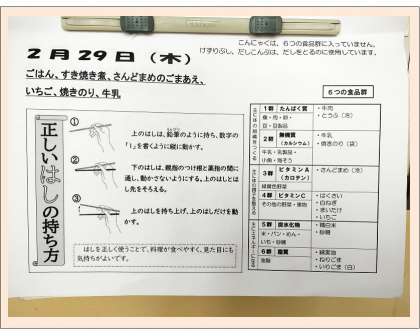 こんにゃくは、6つの食品群に入っていません。
けずりぶし、だしこんぶは、だしをとるのに使用しています。
2月29日（木）
ごはん、すき焼き煮、さんどまめのごまあえ、
いちご、焼きのり、牛乳
正しいはしの持ち方
①
上のはしは、鉛筆のように持ち、数字の
「1」を書くように縦に動かす。
②
下のはしは、親指のつけ根と薬指の間に
通し、動かさないようにする。上のはしとは
し先をそろえる。
③
上のはしを持ち上げ、上のはしだけを動
かす。
はしを正しく使うことで、料理が食べやすく、見た目にも
気持ちがよいです。
6つの食品群
1群 たんぱく質
魚・肉・卵・
豆・豆製品
・牛肉
・とうふ（冷）
2群 無機質
（カルシウム）
牛乳・乳製品・
小魚・海そう
・牛乳
・焼きのり（袋）
3群 ビタミンA
（カロテン）
緑黄色野菜
・さんどまめ（冷）
4群 ビタミンC
その他の野菜・果物
・はくさい
・白ねぎ
・まいたけ
・いちご
5群 炭水化物
米・パン・めん・
いも・砂糖
・精白米
・砂糖
6群 脂質
油脂
・綿実油
・ねりごま
・いりごま（白）